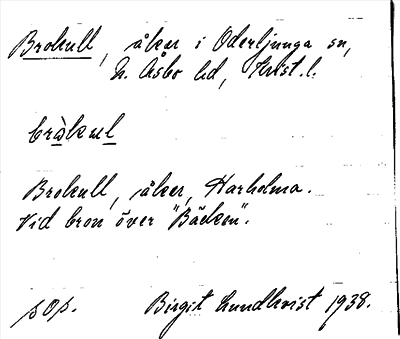 Brokull, åker i Oderljunga sn,
N. Åsbo hd, Krist. l.
bròkul
Brokull, åker, Harholma.
Vid bron över "Bäcken".
sOp. Birgit Lundkvist 1938.